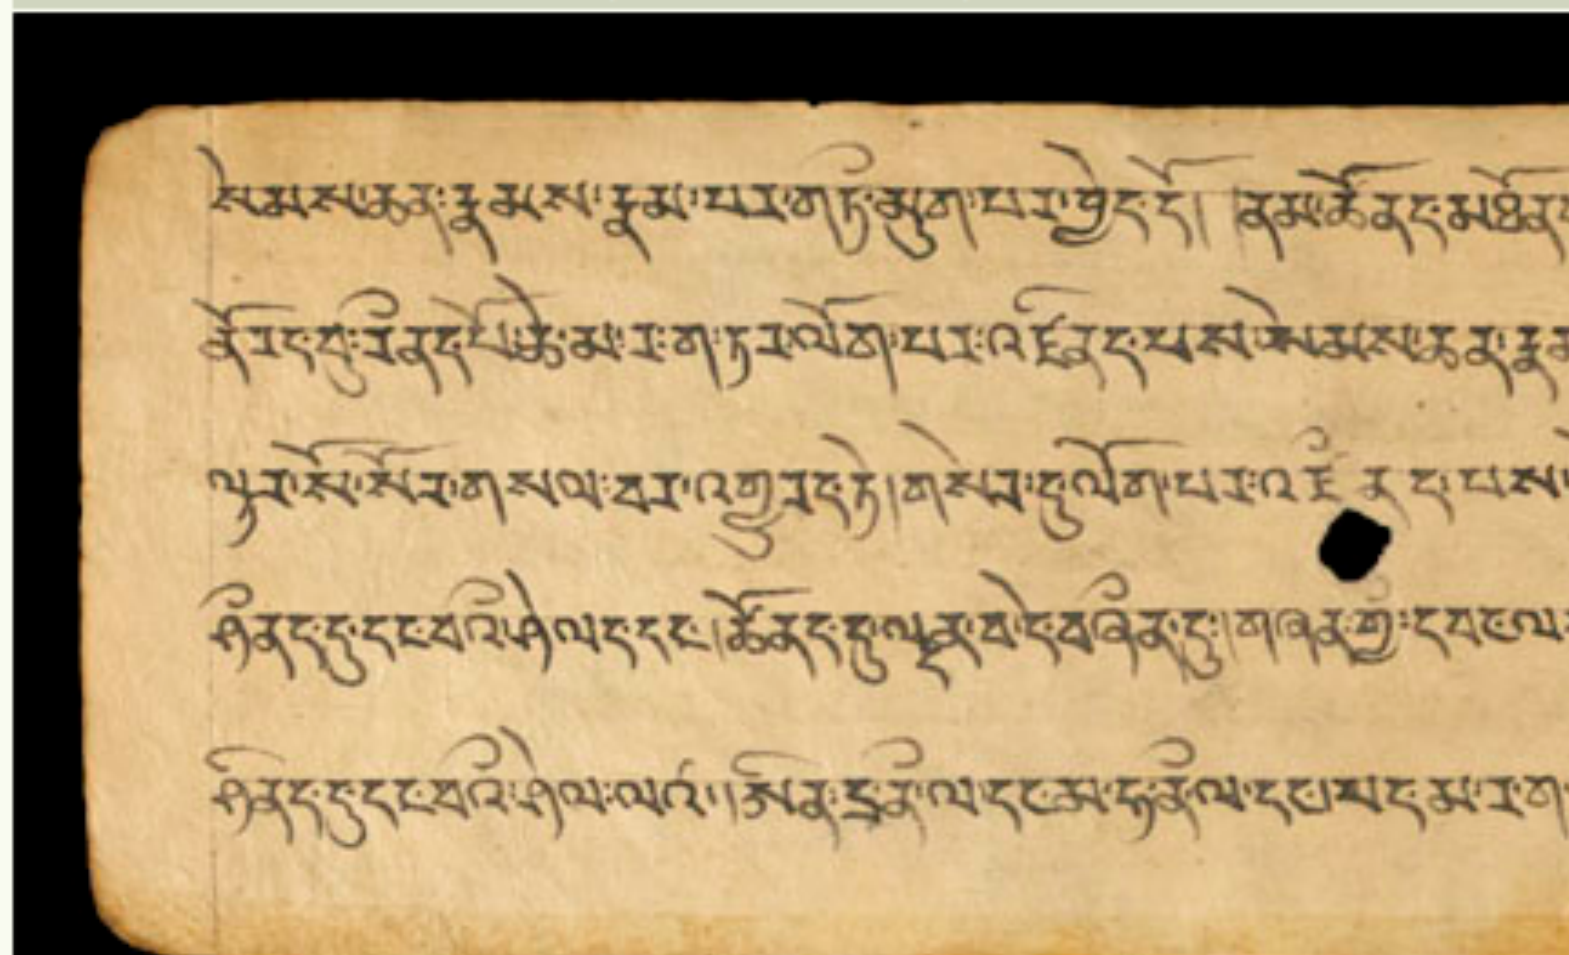 སེམས་ཅན་རྣམས་རྣམ་པར་གཏྀ་མུག་པར་བྱེད་དོ། །ནམ་ཚོནད་མཐོན
ནོརད་བུ་རིནད་པོ་ཆེ་མ་ར་ག་ཏར་ལོག་པར་འཛིནད་པས་སེམས་ཅན་རྣམ
ལྟར་སོ་སོར་གསལ་བར་འགྱུརད་ཏེ།གསེར་དུ་ལོག་པར་འཛྀནད་པས་
ཤིནད་དུ་དང་བའི་ཤེལ་ད་དང།ཚོནད་དུ་ལྡན་བ་དེ་བཞིན་དུ།གཞན་གྱྀ་དབང་ལ
ཤིནད་དུ་དང་བའི་ཤེལ་ལའ།།མིན་དྲ་ནི་ལ་དང་མ་ཧཱ་ནི་ལ་དང།པད་མ་ར་ག་